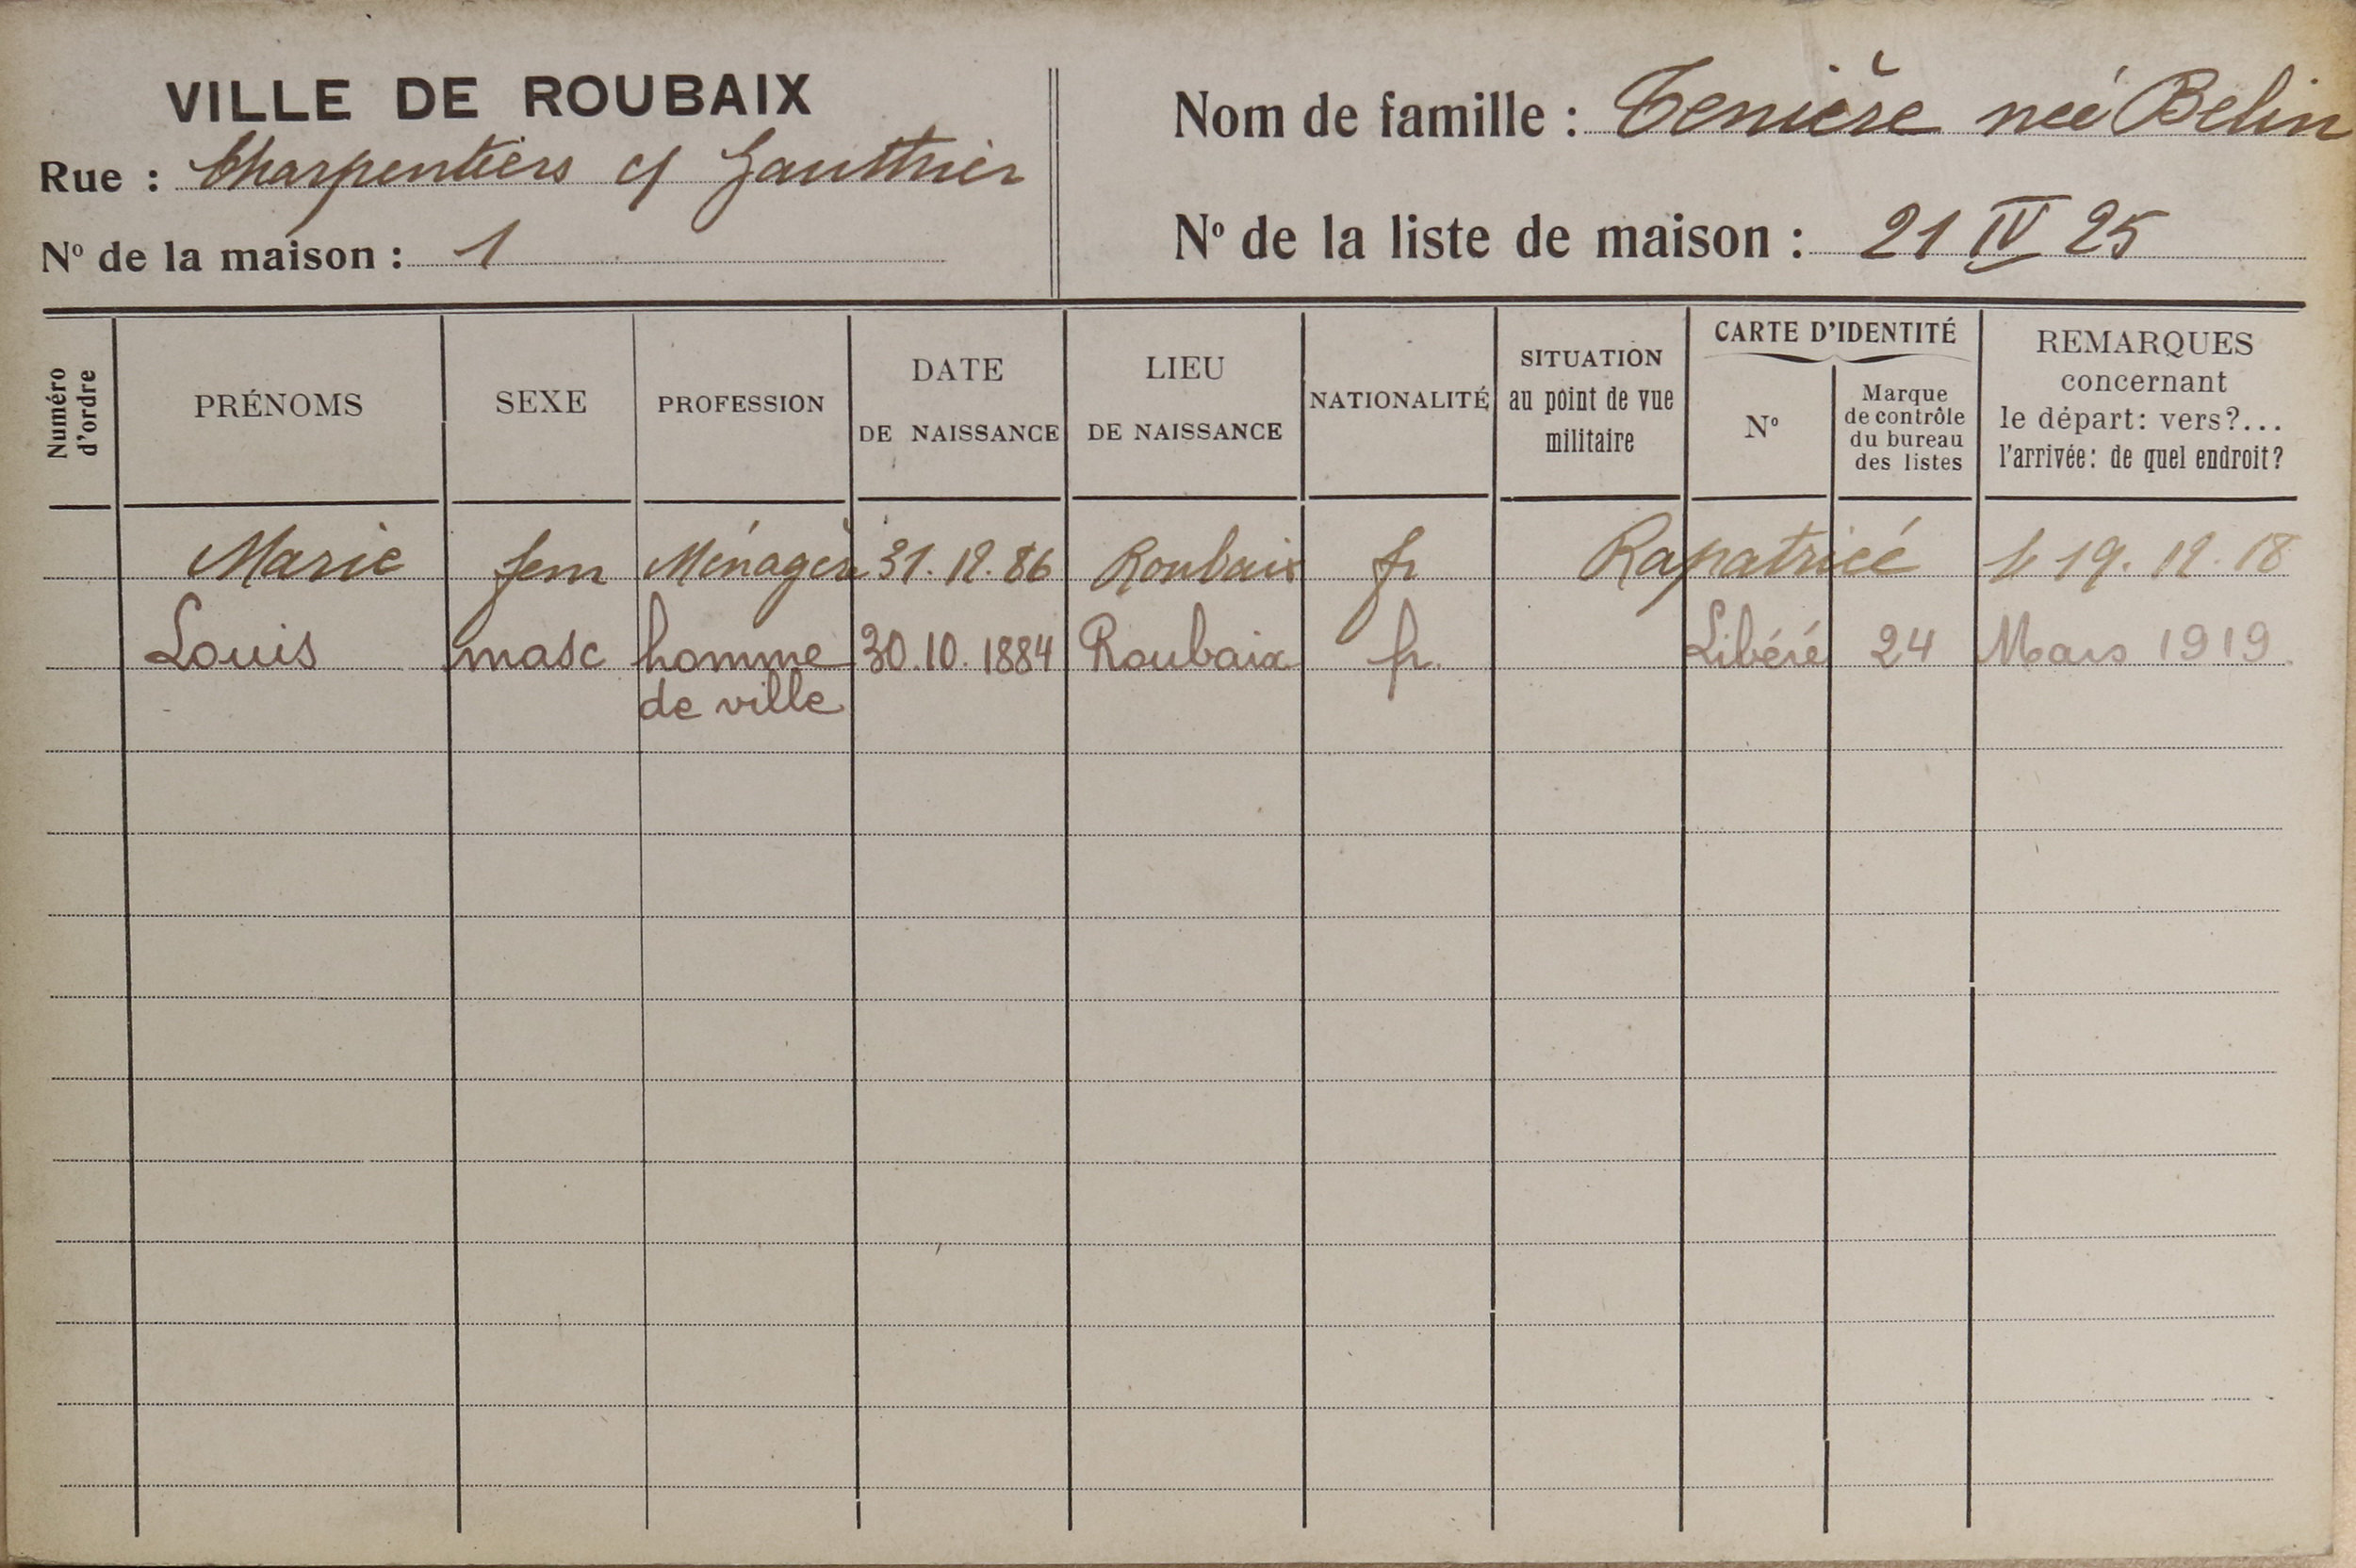 VILLE DE ROUBAIX
Rue : Charpentiers cf Gautthier
Nº de la maison : 1
Nom de famille : Tenière neé Belin
Nº de la liste de maison : 21 IV 25
Numéro d'ordre
PRÉNOMS
SEXE
PROFESSION
DATE
DE NAISSANCE
LIEU
DE NAISSANCE
NATIONALITÉ
SITUATION
au point de vue
militaire
CARTE D'IDENTITÉ
Nº
Marque
de contrôle
du bureau
des listes
REMARQUES
concernant
le départ: vers?...
l'arrivée: de quel endroit?
Marie fem Ménagère 31.12.86 Roubaix fr Rapatrieé le 19.12.18
Louis masc homme 30.10.1884 Roubaix fr. Libéré 24 Mars 1919.
de ville